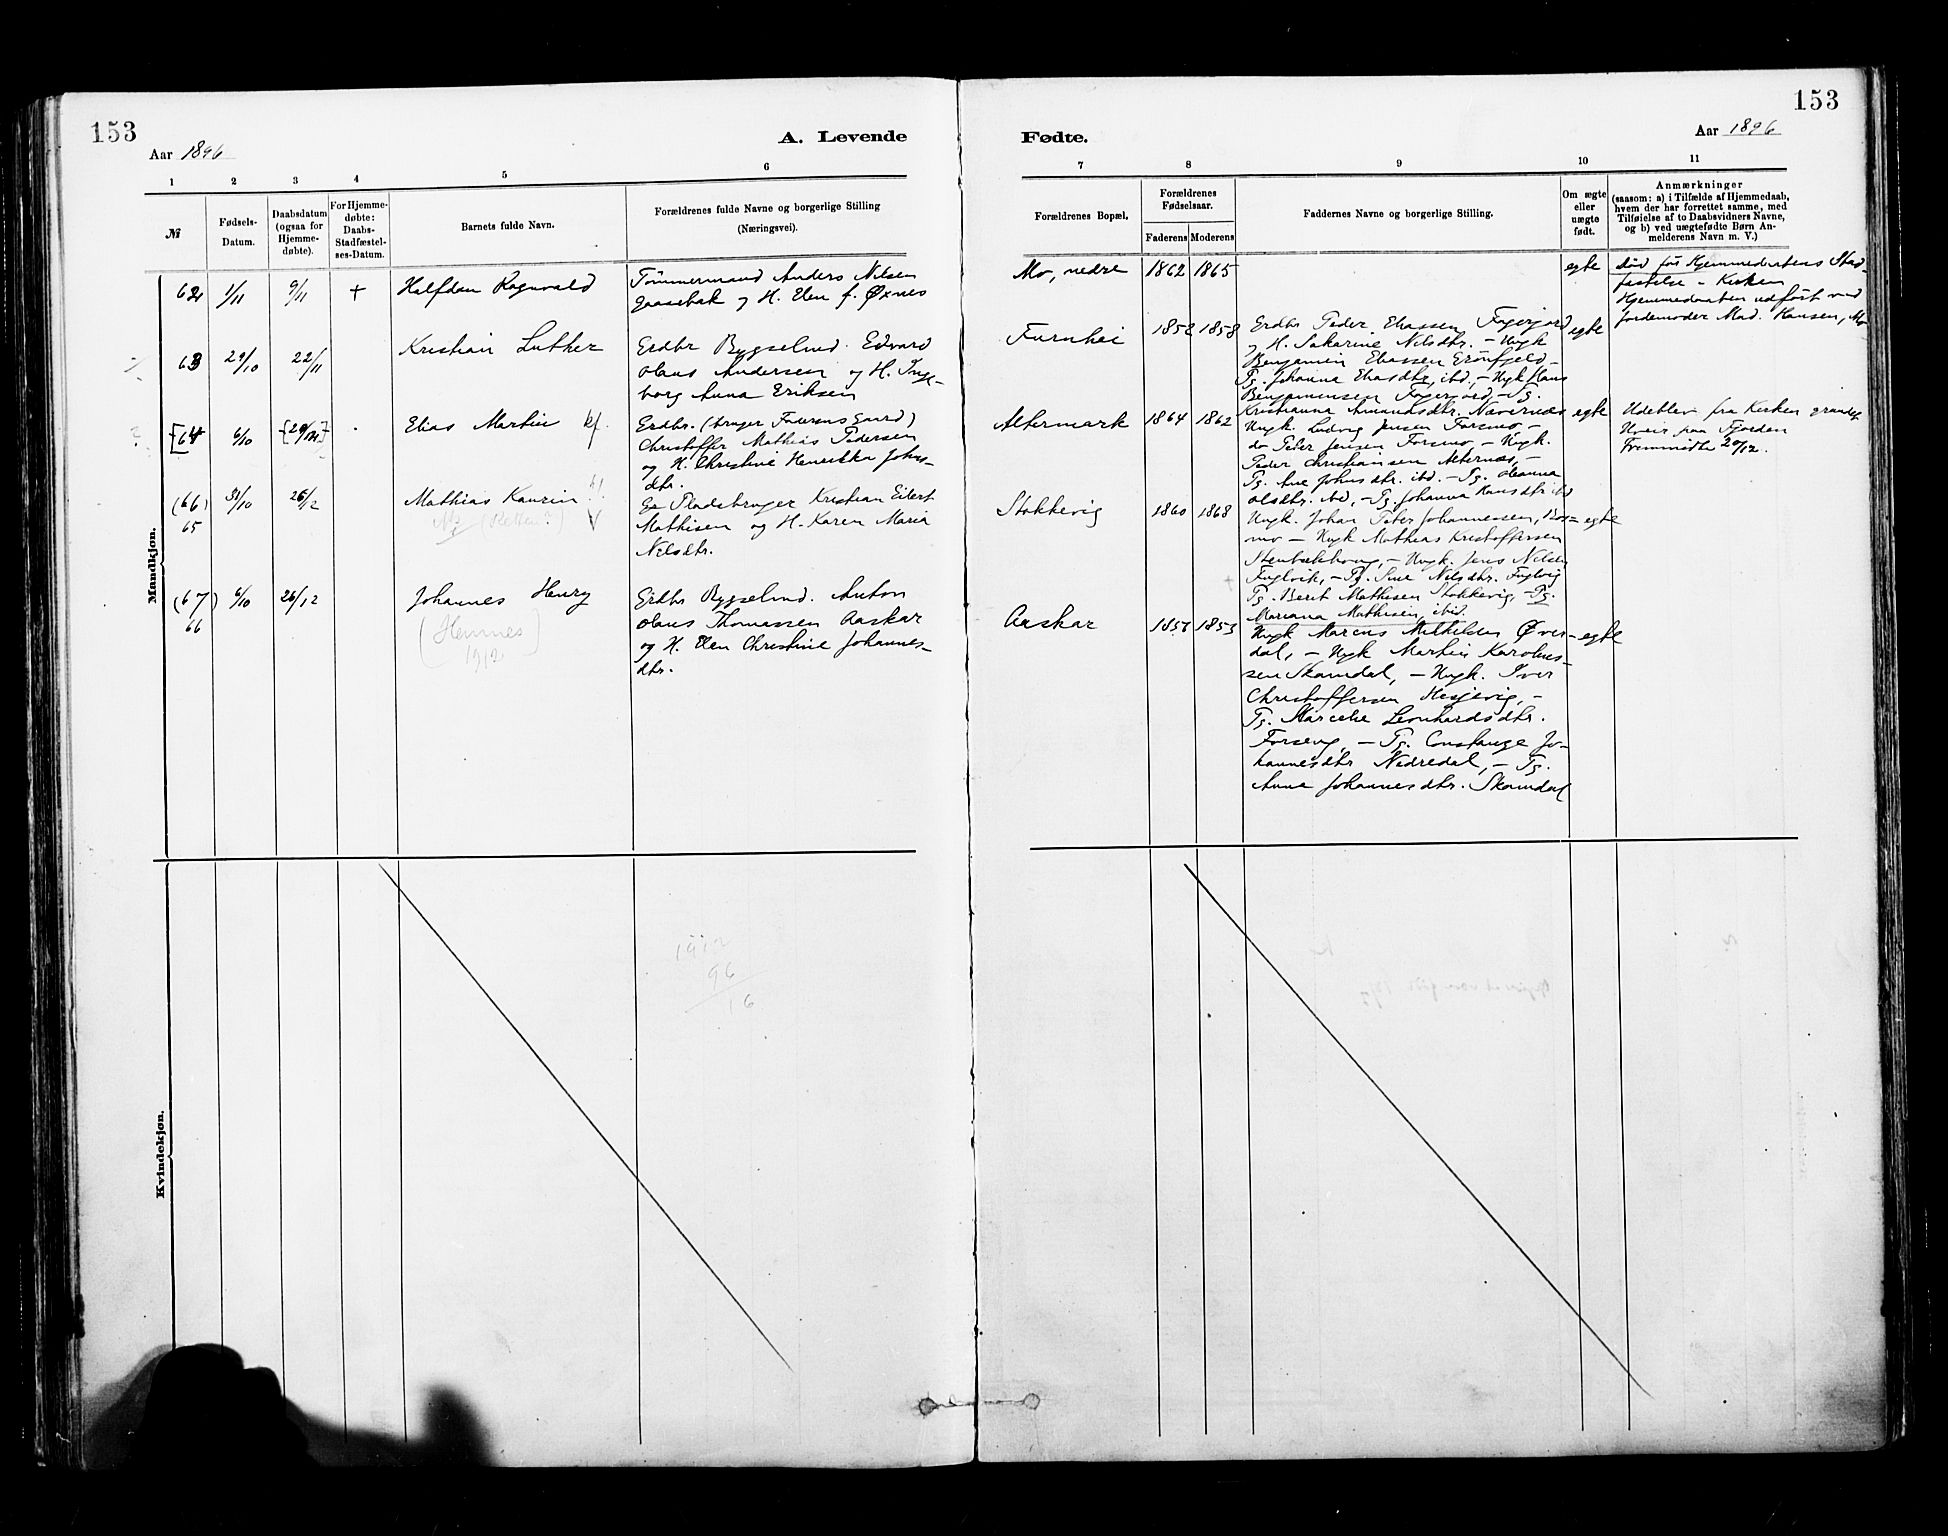 153
Aar 1896
A. Levende
1 2 3 4 5 6
№
Fødsels-
Datum.
Daabsdatum
(ogsaa for
Hjemme-
døbte).
For Hjemme-
døbte:
Daabs-
Stadfæstel-
ses-Datum.
Barnets fulde Navn.
Forældrenes fulde Navne og borgerlige Stilling
(Næringsvei).
Mandkjøn.
62 1/11 9/11 +
Halfdan Ragnvald
Tømmermand Anders Nilsen
Gaasebak og H. Elen f. Øxnes
63 29/10 22/11
Kristian Luther
Grdbr Bygselmd. Edvard
Olaus Andersen og H. Inge-
borg Anna Eriksen
[64 6/10
Elias Martin kf.
Grdbr. (bruger Faderens Gaard)
Christoffer Mathias Pedersen
og H. Christine Henrikka Johns-
dtr.
(66) 31/10 26/12
65
Mathias Kaurin
(Retten?) V
Pladsbruger Kristian Eilert
Mathisen og H. Karen Maria
Nilsdtr.
(67) 6/10 26/12
66
Johannes Henry
(Hemnes)
1912
Grdbr Bygselmd. Anton
Olaus Thomassen Aaskar
og H. Elen Christine Johannes-
dtr.
Kvindekjøn.
1912
96
16
153
Aar 1896
Fødte.
7 8 9 10 11
Forældrenes Bopæl,
Forældrenes
Fødselsaar.
Faderens Moderens
Faddernes Navne og borgerlige Stilling.
Om ægte
eller
uægte
født.
Anmærkninger
(saasom: a) i Tilfælde af Hjemmedaab,
hvem der har forrettet samme, med
Tilføielse af to Daabsvidners Navne,
og b) ved uægtefødte Børn An-
melderens Navn m. V.)
Mo, nedre 1862 1865
egte
død før Hjemmedaabens Stad-
festelse i Kirken
Hjemmedaaben udført ved
Jordemoder Mad. Hansen, Mo
Furuhei 1852 1858
Grdbr Peder Eliassen Fagerjord
og H. Sakarine Nilsdtr. – Ungk
Benjamin Eliassen Grønfjeld –
Pg. Johanna Eliasdtr, ibd, – Ungk Hans
Benjaminsen Fagerjord, – Pg.
Kristianna Amundsdtr. Nævernæs
egte
Altermark 1864 1862
Ungk. Ludvig Jensen Forsmo –
do Peter Jensen Forsmo, – Ungk.
Peder Christiansen Alternæs, –
Pg. Ane Johnsdtr. ibd. – Pg. Oleanna
Olsdtr. ibd, – Pg. Johanna Hansdtr ibd
egte
Udeblev fra Kirken grundet
Uveir paa Fjorden
Fremmødte 20/12.
Stokkevig 1860 1868
Ungk. Johan Peter Johannessen,
mo – Ungk Mathias Kristoffersen
– Ungk. Jens Nilsen
Fuglvik, – Pg. Sine Nilsdtr. Fuglvig
Pg. Berit Mathisen Stokkevig, – Pg.
Mariana Mathisen, ibid.
egte
Aaskar 1857 1853
Ungk Marcus Mikkelsen Øver-
dal, – Ungk Martin Karolius-
sen Skamdal, – Ungk. Iver
Christoffersen Hesjevig, –
Pg. Marcelie Leonhardsdtr.
Forseng, – Pg. Constanse Jo-
hannesdtr Nedredal, – Pg.
Anna Johannesdtr. Skamdal
egte